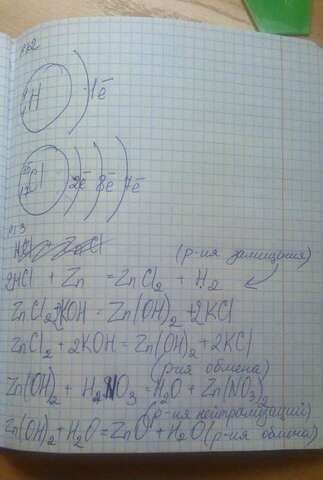 №2
H 1ē
Cl 2ē 8ē 7ē
№3
(р-ия замищения)
2HCl + Zn = ZnCl₂ + H₂
ZnCl₂ 2KOH = Zn(OH)₂ + 2KCl
ZnCl₂ + 2KOH = Zn(OH)₂ + 2KCl
(р-ия обмена)
Zn(OH)₂ + H₂NO₃ = H₂O + Zn(NO₃)₂
(р-ия нейтрализации)
Zn(OH)₂ + H₂O = ZnO + H₂O (р-ия обмена)